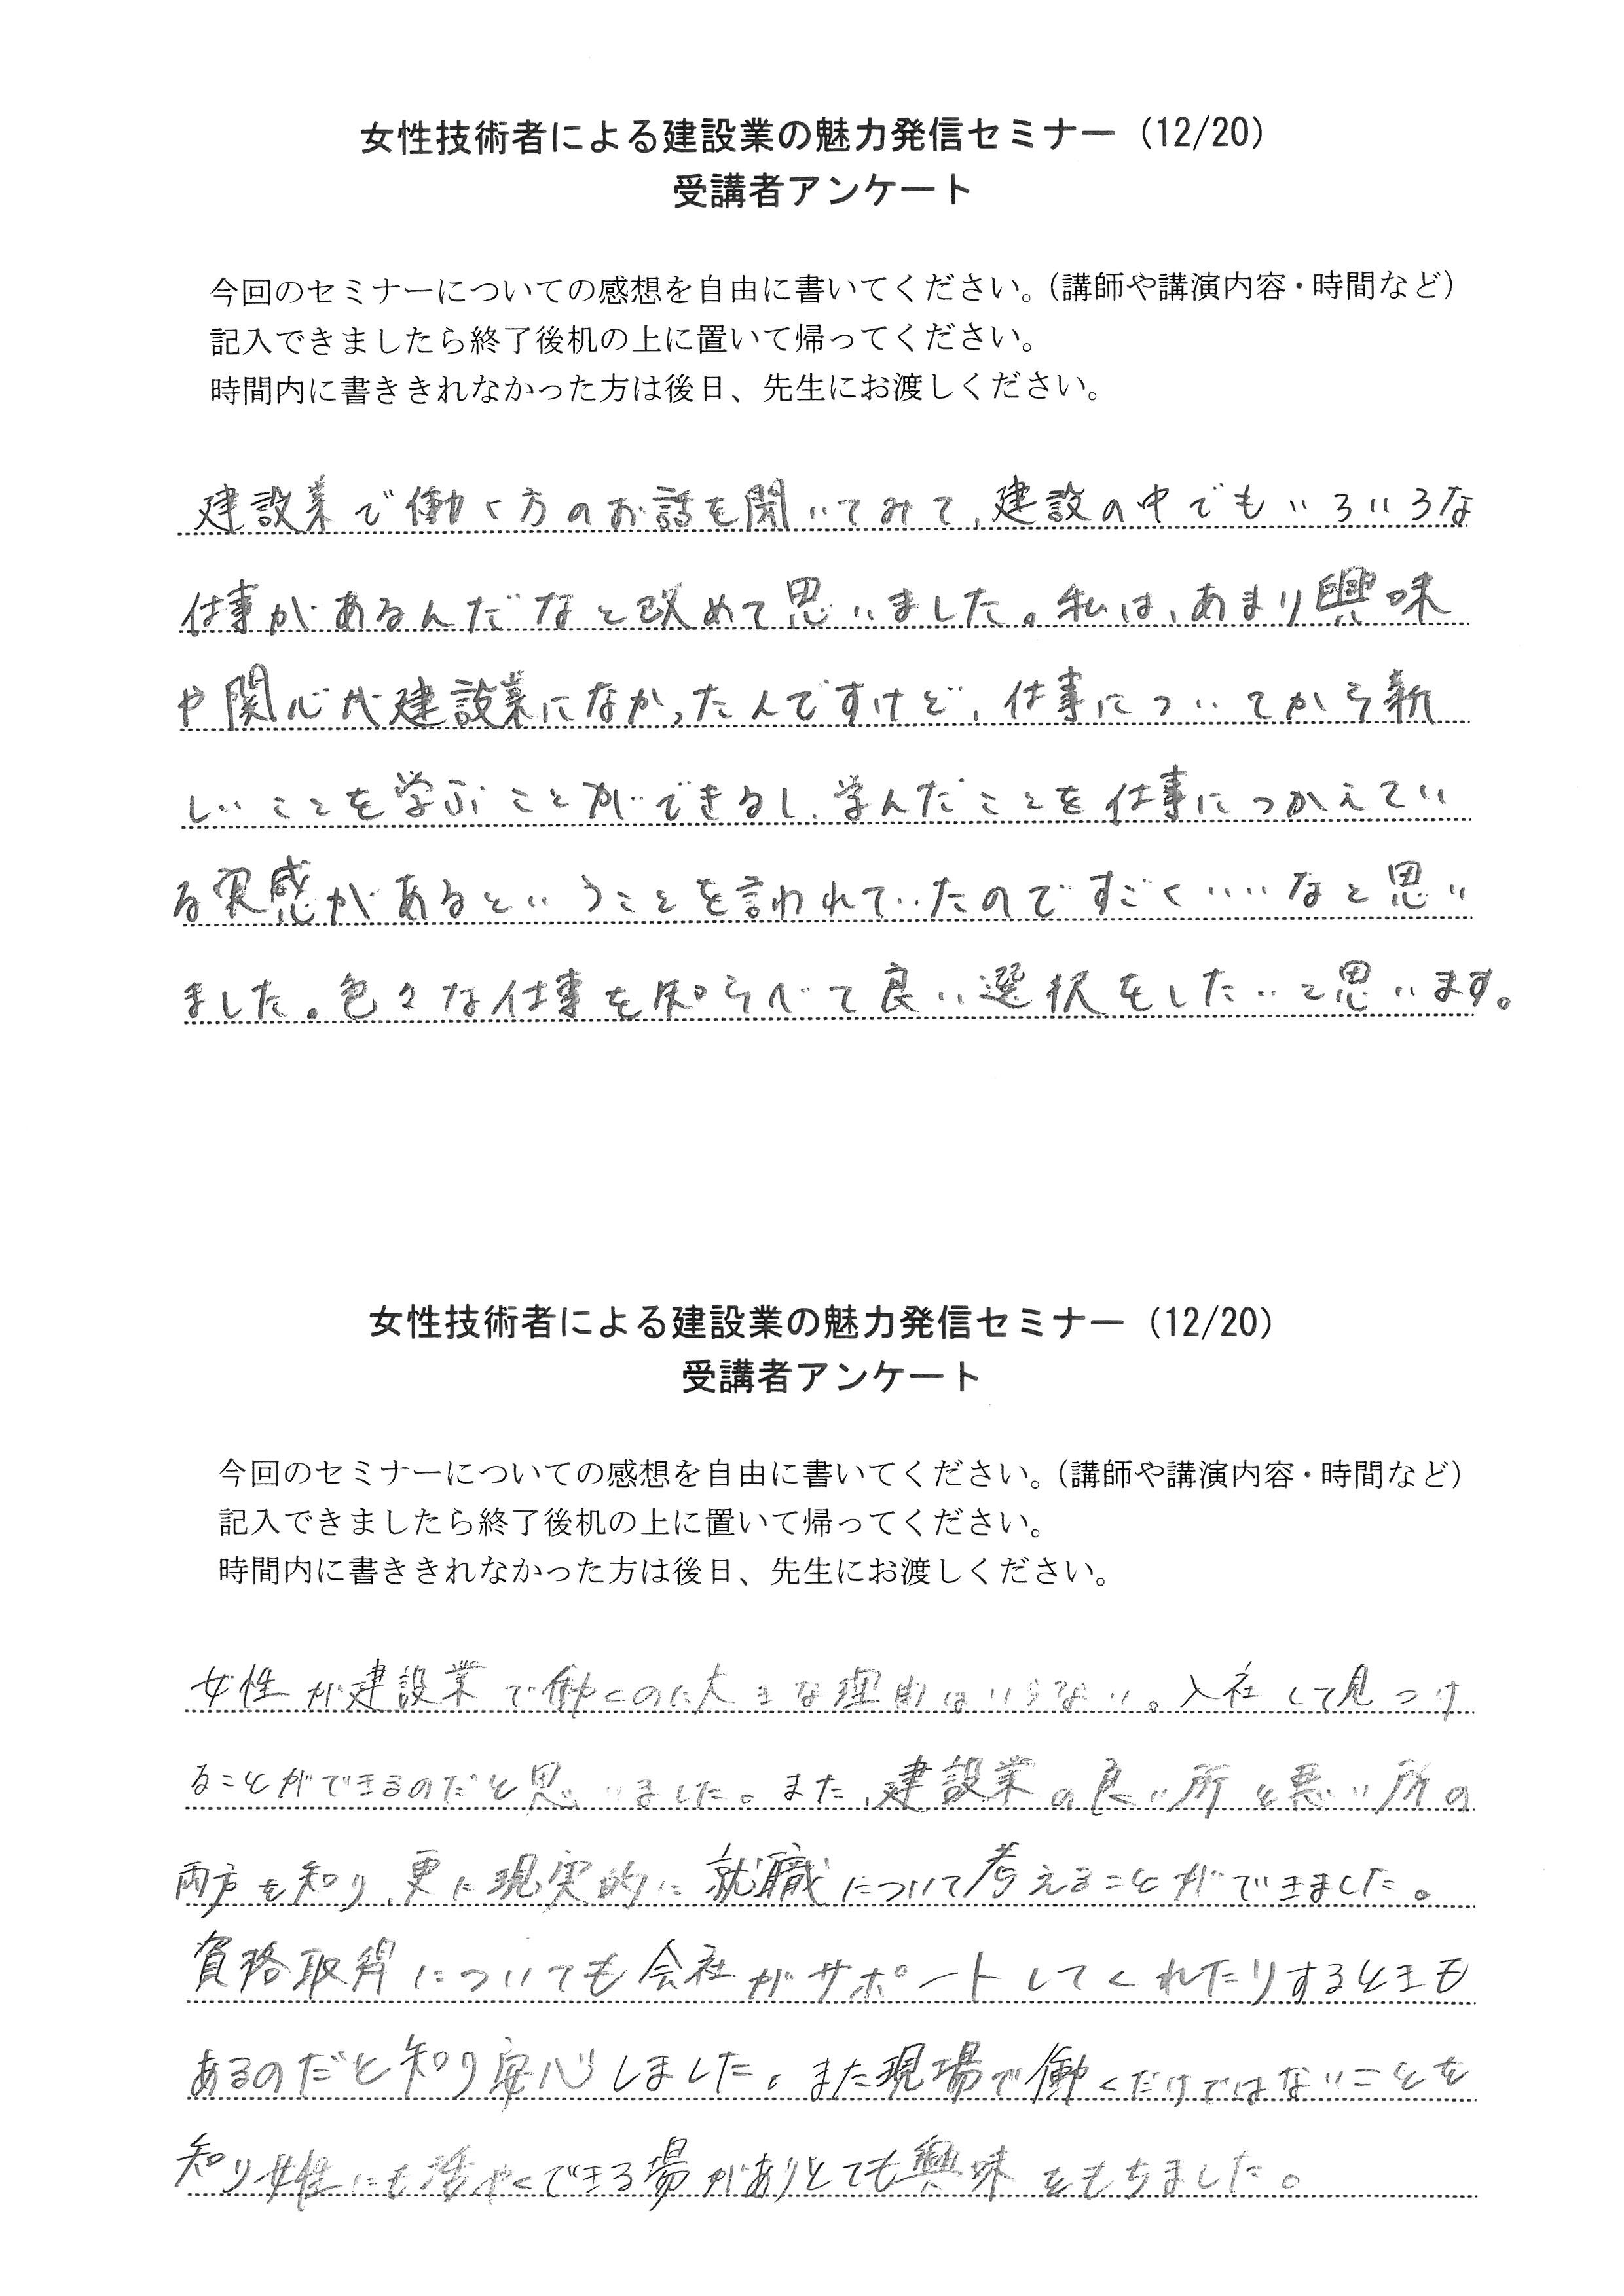 女性技術者による建設業の魅力発信セミナー（12/20）
受講者アンケート
今回のセミナーについての感想を自由に書いてください。（講師や講演内容・時間など）
記入できましたら終了後机の上に置いて帰ってください。
時間内に書ききれなかった方は後日、先生にお渡しください。
建設業で働く方のお話を聞いてみて、建設の中でもいろいろな
仕事があるんだなと改めて思いました。私は、あまり興味
や関心が建設業になかったんですけど、仕事についてから新
しいことを学ぶことができるし、学んだことを仕事につかえてい
る実感があるということを言われていたのですごくいいなと思い
ました。色々な仕事を知らべて良い選択をしたいと思います。
女性技術者による建設業の魅力発信セミナー（12/20）
受講者アンケート
今回のセミナーについての感想を自由に書いてください。（講師や講演内容・時間など）
記入できましたら終了後机の上に置いて帰ってください。
時間内に書ききれなかった方は後日、先生にお渡しください。
女性が建設業で働くのに大きな理由はいらない。入社して見つけ
ることができるのだと思いました。また、建設業の良い所と悪い所の
両方を知り、更に現実的に就職について考えることができました。
資格取得についても会社がサポートしてくれたりするときも
あるのだと知り安心しました。また現場で働くだけではないことを
知り女性にも活やくできる場がありとても興味をもちました。